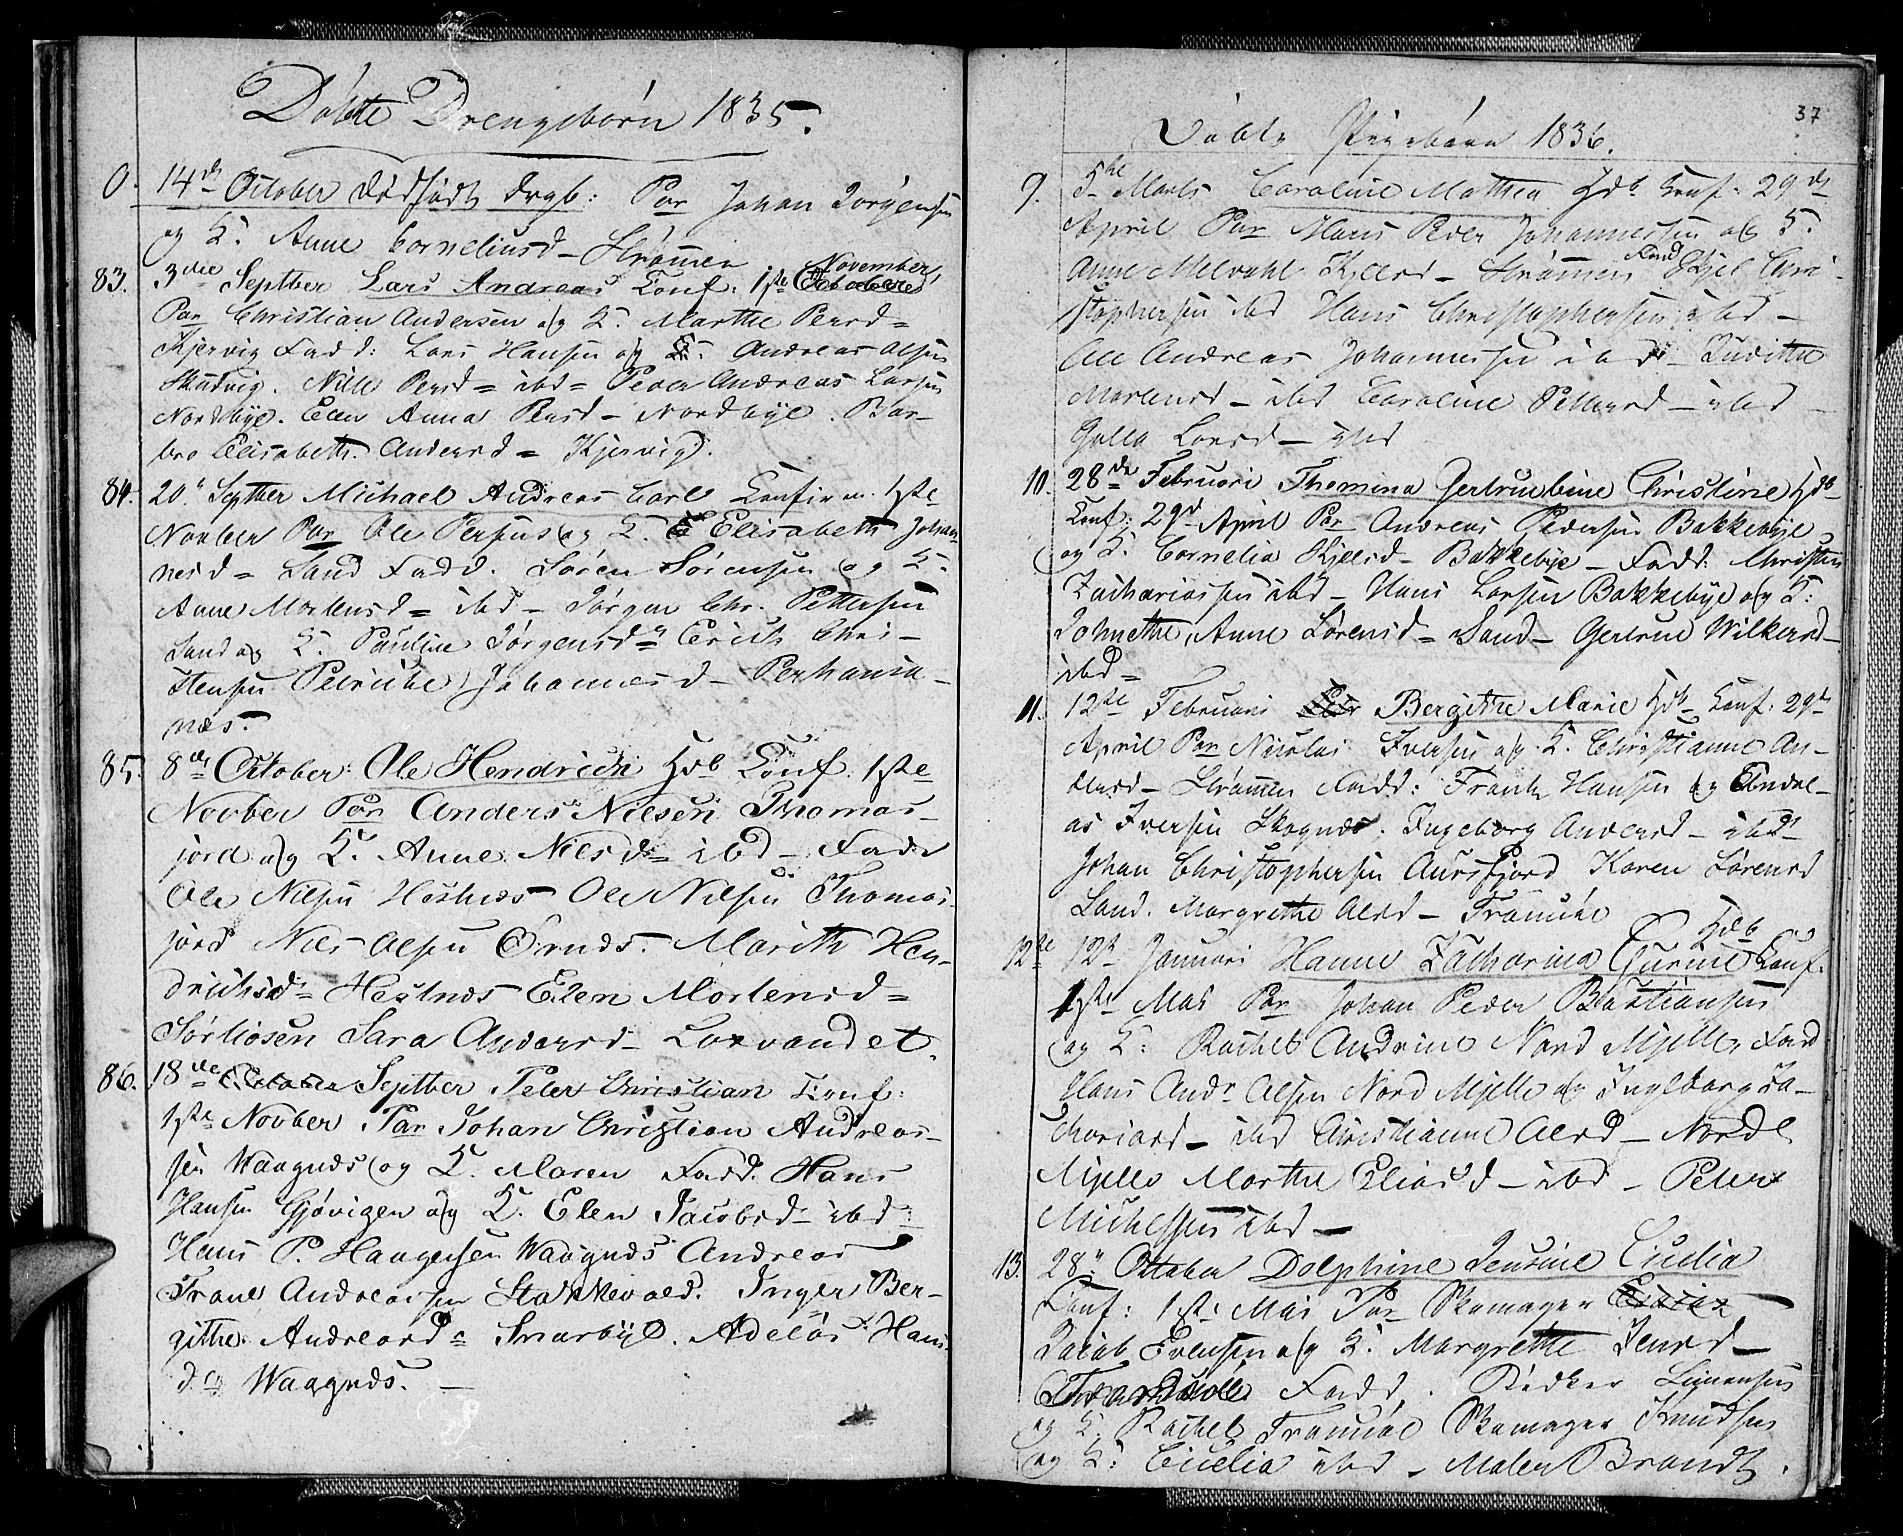 Döbte Drengebörn 1835.
0. 14de October dödfödt drgb: Par Johan Jörgensen
og K. Anne Corneliusd- Strömmen
November
83. 3die Septber Lars Andreas Conf: 1ste October
Par Christian Andersen og K. Marthe Persd=
Kjervig Fadd: Lars Hansen og K: Andreas Olsen
Skudvig. Nille Persd= ibd= Peder Andreas Larsen
Nordbye. Elen Anna Persd- Nordbye. Bar-
bro Elisabeth Andersd= Kjervig.
84. 20de Septber Michael Andreas Carl Confirm. 1ste
Novber Par Ole Persen og K. E Elisabeth Johan-
nesd= Sand Fadd. Sören Sörensen og K.
Anne Mortensd= ibd- Jörgen Chr. Pettersen
Sand og K. Pauline Jörgensd= Erich Chri-
stensen Petriche Johannesd- Perhania-
næs.
85. 8de October Ole Hendrich Hdb Conf: 1ste
Novber Par Anders Nielsen Thomas-
jord og K. Anne Nilsd= ibd- Fadd
Ole Nilsen Hestnæs Ole Nilsen Thomas-
jord Nils Olsen Örnæs. Marith Hen-
drichsd= Hestnæs Elen Mortensd=
Sörliosen Sara Andersd- Laxvandet.
86. 18de October Septber Peter Christian Conf:
1ste Novber Par Johan Christian Andreas-
sen Waagnæs og K. Maren Fadd. Hans
Hansen Gjövigen og K. Elen Jacobsd- ibd:
Hans P. Haagensen Waagnæs Andreas
Trane Andreassen Stakkevold. Inger Ber-
githe Andreasd= Smørbye. Adelus Hans
d= Waagnæs. -
37
Döbte Pigebörn 1836.
9. 5te Marts Caroline Mathea Hdb Conf: 29de
April Par Hans Peder Johannessen og K.
Anne Melvahl Kjelsd- Strömmen Fadd Kjel Chri-
stophersen ibd Hans Christophersen ibd-
Ole Andreas Johannessen ibd- Judithe
Mortensd- ibd Caroline Pettersd- ibd-
Golla Larsd- ibd
10. 28de Februari Thomina Gertrudine Christine Hdb
Conf: 29de April Par Andreas Pedersen Bakkebye
og K. Cornelia Kjelsd- Bakkebye- Fadd: Christen
Zachariassen ibd- Hans Larsen Bakkebye og K:
Johnethe, Anne Sörensd= Sand- Gertrud Wilkersd-
ibd=
11. 12te Februari Bergithe Marie Hdb- Conf. 29de
April Par Nicolai Iversen og K. Christianne An-
dersd- Strömmen Fadd: Frantz Hansen og Andre-
as Iversen Skognæs. Ingeborg Andersd- ibd-
Johan Christophersen Aursfjord Karen Sörensd
Sand. Margrethe Olsd- Tromsöe
Hdb
12te 12te Januari Hanne Zacharina Gurine Conf.
1ste Mai Par Johan Peder Bastiansen
og K: Rachel Andrine Nord Mjelle Fadd
Hans Andr Olsen Nord Mjelle og Ingeborg Za-
chariasd- ibd Christianne Olsd- Nord
Mjelle Marthe Eliasd- ibd- Peter
Michelsen ibd-
13. 28de October Dolphine Jensine Cecilia
Conf: 1ste Mai Par Skomager
Jacob Evensen og K. Margrethe Jensd-
Fadd. Rödker Simonsen
og K. Rachel Tromsöe Skomager Knudsen
og K: Cicilia ibd- Maler Brandt.